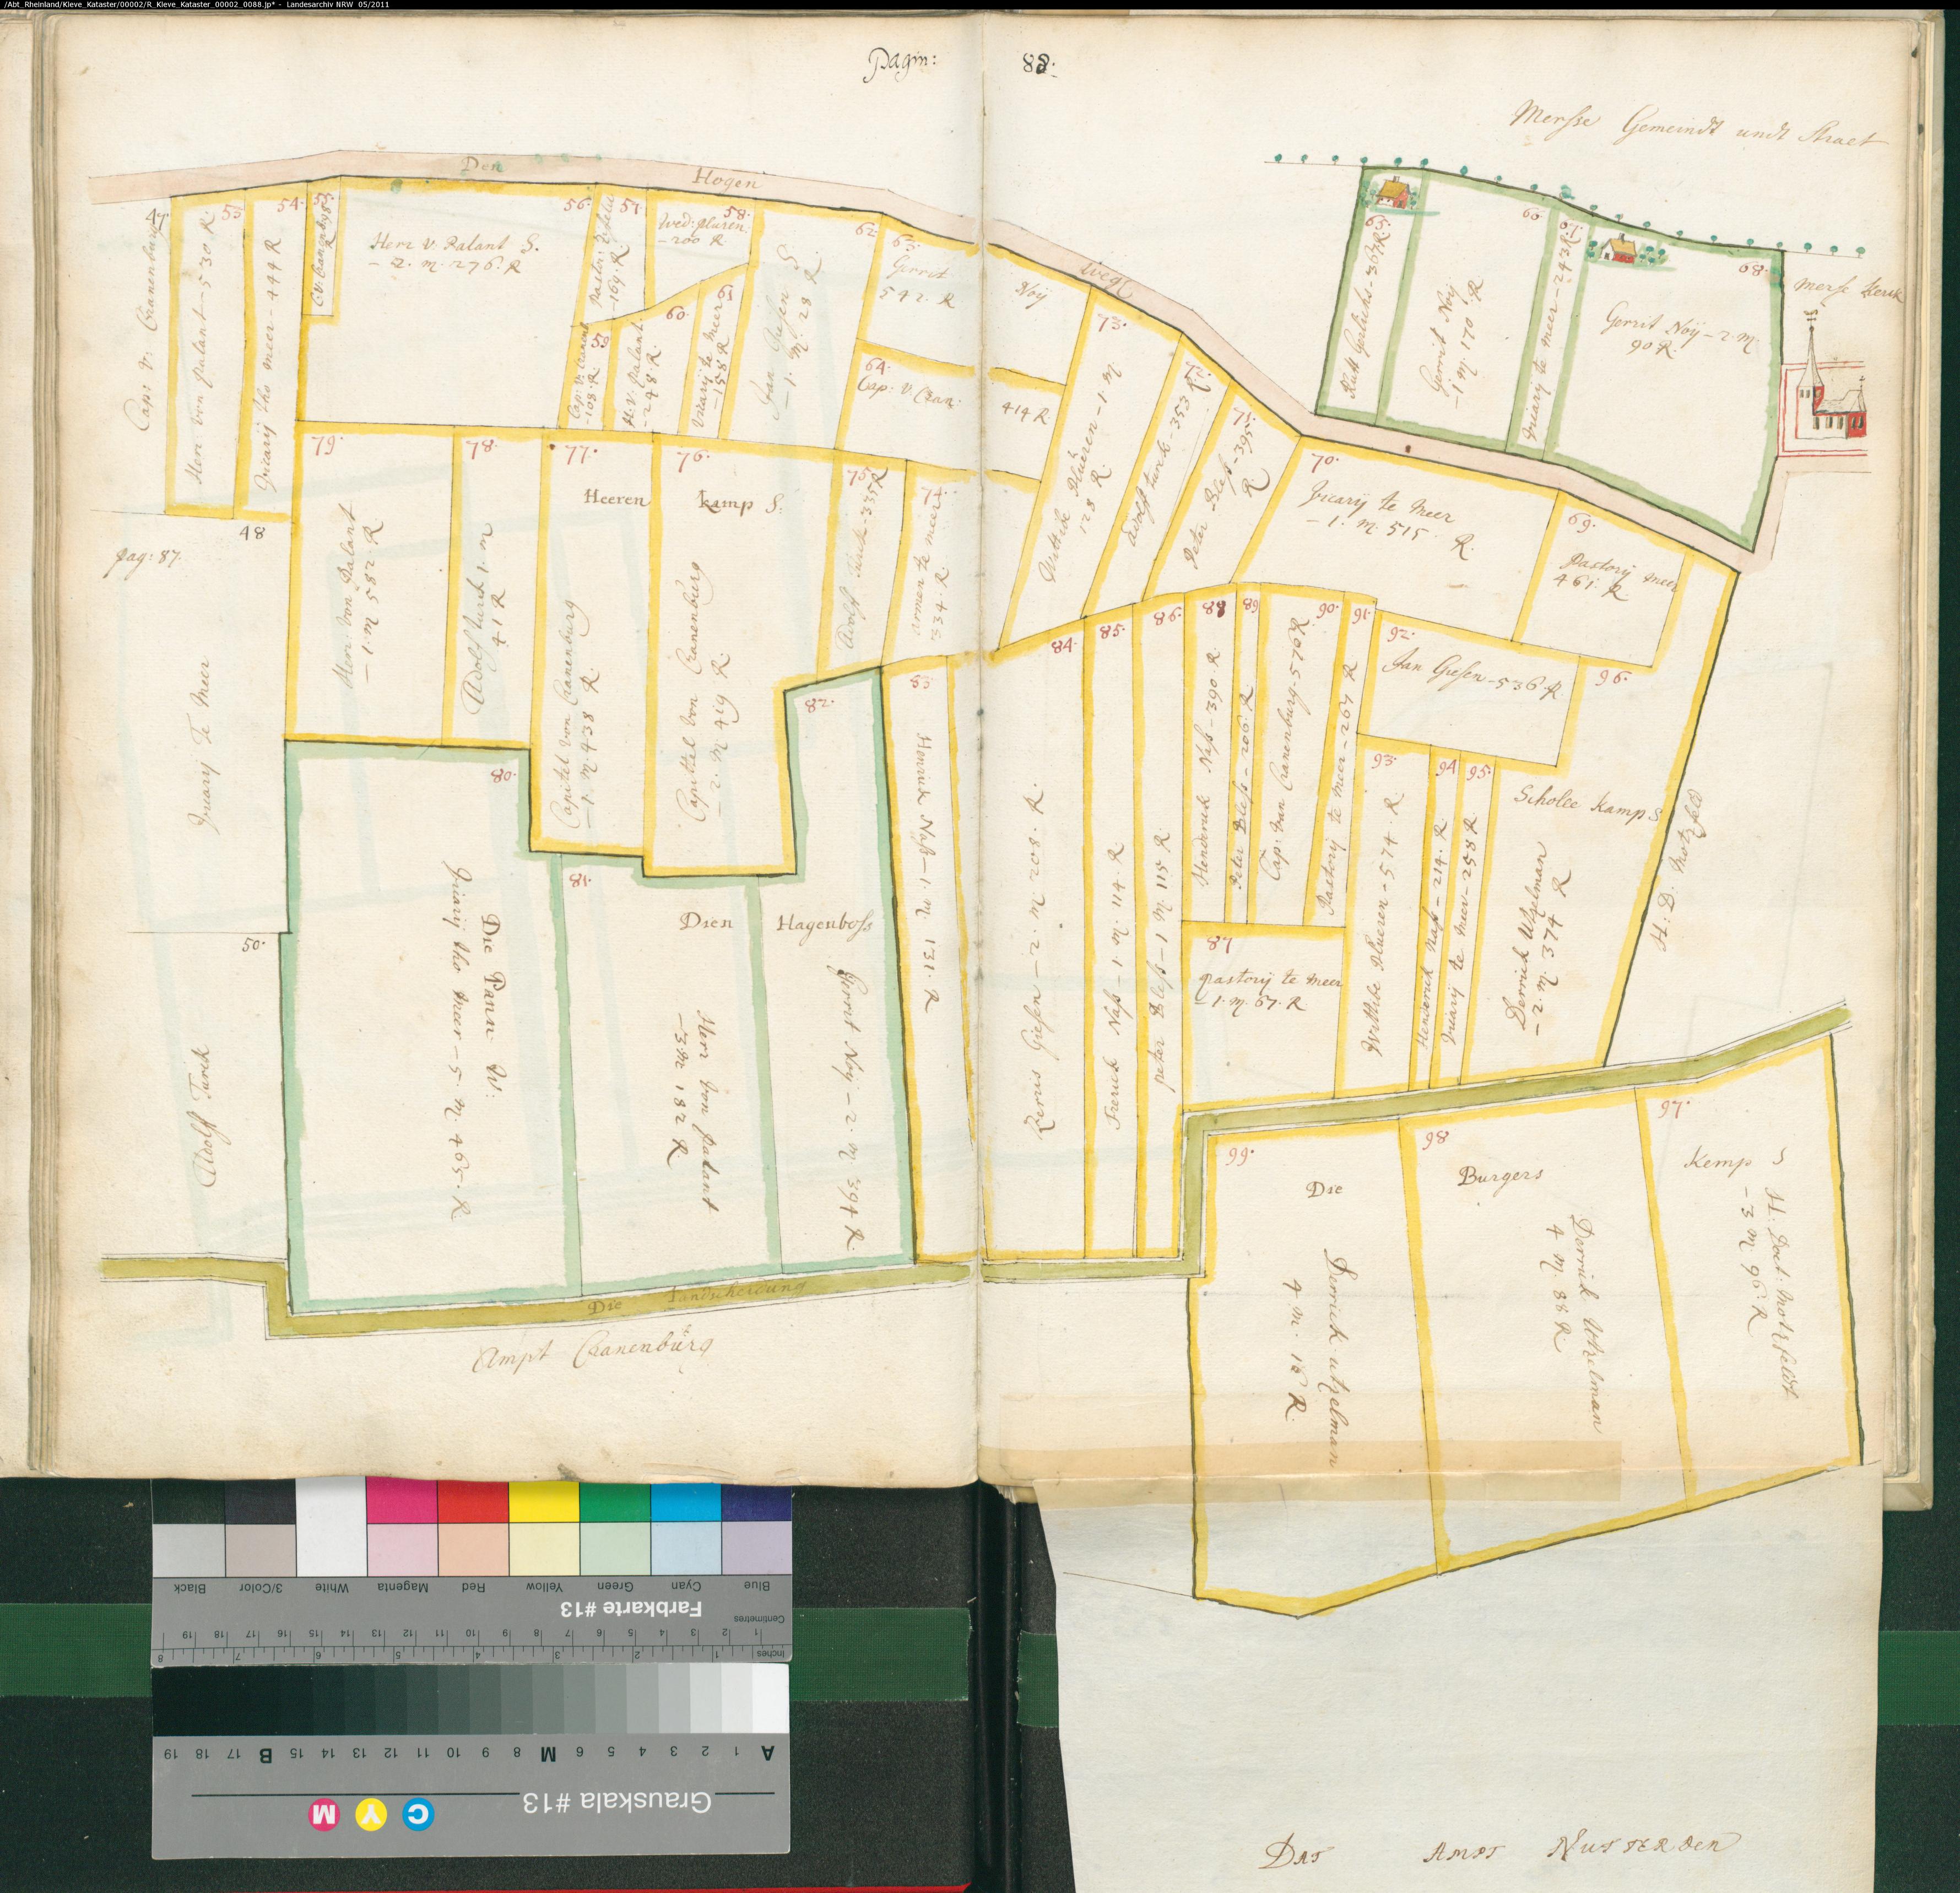 /Abt_Rheinland/Kleve_Kataster/00002/R_Kleve_Kataster_00002_0088.jp* - Landesarchiv NRW 05/2011
Pagin: 88.
Mersse Gemeindt undt Straet
Den Hogen Wegh
Merse Kerck
47.
Cap: v: Cranenburg
53.
Herr von Palant - 530 R.
54.
Vicarij tho meer - 444 R
55.
C.V. Cranenb
R
56.
Herr v. Palant S.
- 2. m. 276. R
57.
Pastori
- 169. R.
58.
Wed: Pluren
- 200 R
59
Cap: V. Cranenb
- 108. R.
60.
H. V. Palant
- 248. R.
61
Vicarij te Meer
- 158 R
62.
Jan Giesen S
- 1. m. 28 R.
63.
Gerrit Noij
542. R
64.
Cap: v. Cran:
414 R.
65.
- 367. R.
66.
Gerrit Noij
- 1 m. 170 R
67.
Vicarij te meer - 243 R.
68.
Gerrit Noij - 2. m.
90 R.
69.
Pastorij meer
461. R.
70.
Vicarij te Meer
- 1. m. 515. R.
71.
Peter Bless - 395
R.
72.
Adolff turck - 353 R.
73.
Wittibe Plueren - 1. m
128 R.
74.
Armen te meer
334. R.
75.
Adolff Turck - 335 R
76.
Kamp S.
Capittel von Cranenburg
- 2. m 419 R.
77.
Heeren
Capitel von Cranenburg
- 1. m. 438 R.
78.
Adolff turck 1. m
41 R
79.
Herr von Palant
- 1. m 582. R
48
pag: 87.
Vicarij Te Meer
50.
Adolff Turck
80.
Die Pann W:
Vicarij tho meer - 5. m. 465. R.
81.
Dien Hagenboss
Herr von Palant
- 3. m 182 R.
82.
Gerrit Noij - 2. m. 394 R.
83
Henrick Nass - 1. m. 131. R
84.
Giesen - 2. m. 208. R.
85.
Frerick Nass - 1. m. 114. R
86.
peter Bless - 1 m. 115 R.
87
pastorij te meer
- 1. m. 67. R
88
Henderick Nass - 390 R.
89
Peter Bless - 206. R.
90.
Cap: van Cranenburg - 576 R.
91.
Pastorij te meer - 267 R
92.
Jan Giesen - 536. R.
93.
Wittibe Plueren - 574. R.
94
Henderick Nass - 214. R.
95.
Vicarij te meer - 258 R.
96.
Scholte Kamp S
Derrick Utzelman
- 2. m. 374 R
H: D: Motzfeld
97.
Kemp S
H: Doct: Motzfeldt
- 3 m. 96. R
98
Burgers
Derrick Utzelman
4 m. 88 R.
99.
Die
Derrick utzelman
4 m. 16 R.
Die Landscheidung
Ampt Cranenburg
Blue Cyan Green Yellow Red Magenta White 3/Color Black
Farbkarte #13
Centimetres
1 2 3 4 5 6 7 8 9 10 11 12 13 14 15 16 17 18 19
Inches
1 2 3 4 5 6 7 8
A 1 2 3 4 5 6 M 8 9 10 11 12 13 14 15 B 17 18 19
Grauskala #13
C Y M
Dat Ampt Nutterden